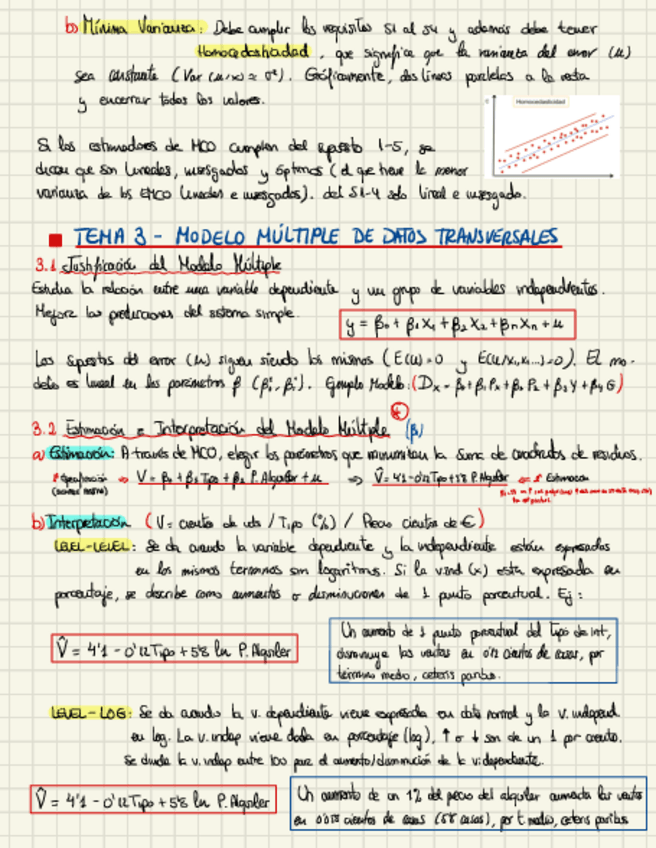 b) Mínima Varianza: Debe cumplir los requisitos S1 al S4 y además debe tener
Homocedasticidad, que significa que la varianza del error (u)
sea constante (Var (u/x) = σ²). Gráficamente, dos líneas paralelas a la recta
y encerrar todos los valores.
Homocedasticidad
Si los estimadores de MCO cumplen del supuesto 1-5, se
dicen que son lineales, insesgados y óptimos (el que tiene la menor
varianza de los EMCO lineales e insesgados). del S1-4 solo lineal e insesgado.
TEMA 3 - MODELO MÚLTIPLE DE DATOS TRANSVERSALES
3.1 Justificación del Modelo Múltiple
Estudia la relación entre una variable dependiente y un grupo de variables independientes.
Mejora las predicciones del sistema simple.
y = β₀ + β₁X₁ + β₂X₂ + βnXn + u
Los supuestos del error (u) siguen siendo los mismos (E(u)=0 y E(u/x₁,x₂...)=0). El mo-
delo es lineal en los parámetros β. Ejemplo Modelo: (Dx = β₀ + β₁Px + β₂Pz + β₃Y + β₄G)
3.2 Estimación e Interpretación del Modelo Múltiple
a) Estimación: A través de MCO, elegir los parámetros que minimizan la suma de cuadrados de residuos.
V = β₀ + β₁Tipo + β₂ P.Alquiler + u ⇒ V̂ = 4'1 - 0'12Tipo + 5'8 P.Alquiler ⇐ Estimación
b) Interpretación (V = cientos de uds / Tipo (%) / Precio cientos de €)
LEVEL-LEVEL: Se da cuando la variable dependiente y la independiente están expresadas
en los mismos términos sin logaritmos. Si la v.ind (x) está expresada en
porcentaje, se describe como aumentos o disminuciones de 1 punto porcentual. Ej:
V̂ = 4'1 - 0'12Tipo + 5'8 ln P.Alquiler
Un aumento de 1 punto porcentual del Tipo de int,
disminuye las ventas en 0'12 cientos de casas, por
término medio, ceteris paribus.
LEVEL-LOG: Se da cuando la v. dependiente viene expresada en dato normal y la v. independ
en log. La v. indep viene dada en porcentaje (log), ↑ o ↓ son de un 1 por ciento.
Se divide la v. indep entre 100 para el aumento/disminución de la v. dependiente.
V̂ = 4'1 - 0'12Tipo + 5'8 ln P.Alquiler
Un aumento de un 1% del precio del alquiler aumenta las ventas
en 0'058 cientos de casas (5'8 casas), por t. medio, ceteris paribus